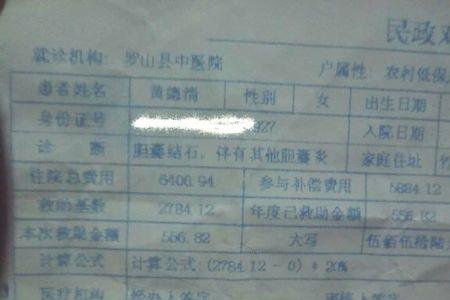 民政对
就诊机构: 罗山县中医院 户属性: 农村低保
患者姓名 黄德情 性别 女 出生日期
身份证号 927 入院日期
诊 断 胆囊结石, 伴有其他胆囊炎 家庭住址
住院总费用 6406.94 参与补偿费用 5884.12
救助基数 2784.12 年度已救助金额 556.82
本次救助金额 556.82 大写 伍佰伍拾陆
计算公式 计算公式:(2784.12 - 0) * 20%
医疗机构 经办人签字 审核人签字